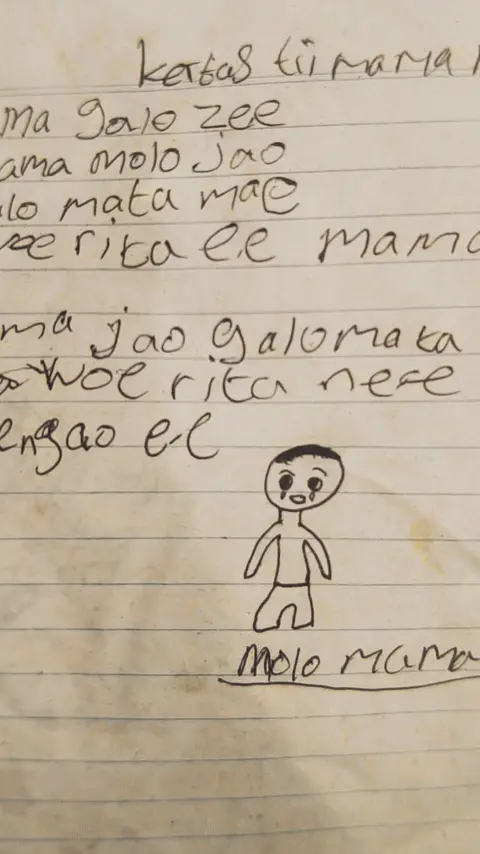 kertas tii mama
ma galo zee
ama molo jao
lo mata mae
rita e.e mama
ma jao galomata
woe rita nese
engao e-e
molo mama